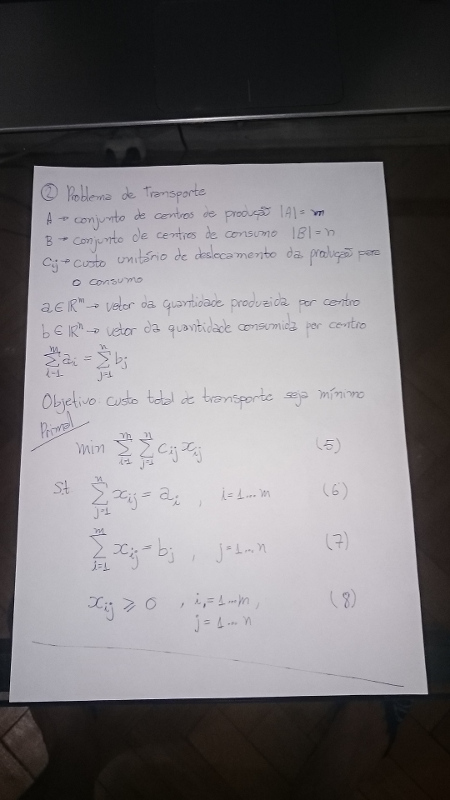 ② Problema de Transporte
A → conjunto de centros de produção |A| = m
B → conjunto de centros de consumo |B| = n
Cij → custo unitário de deslocamento da produção para
o consumo
a ∈ ℝᵐ → vetor da quantidade produzida por centro
b ∈ ℝⁿ → vetor da quantidade consumida por centro
∑_{i=1}^{m} ai = ∑_{j=1}^{n} bj
Objetivo: custo total de transporte seja mínimo
Primal
min ∑_{i=1}^{m} ∑_{j=1}^{n} cij xij (5)
S.t ∑_{j=1}^{n} xij = ai , i=1...m (6)
∑_{i=1}^{m} xij = bj , j=1...n (7)
xij ⩾ 0 , i,=1...m, (8)
j=1...n